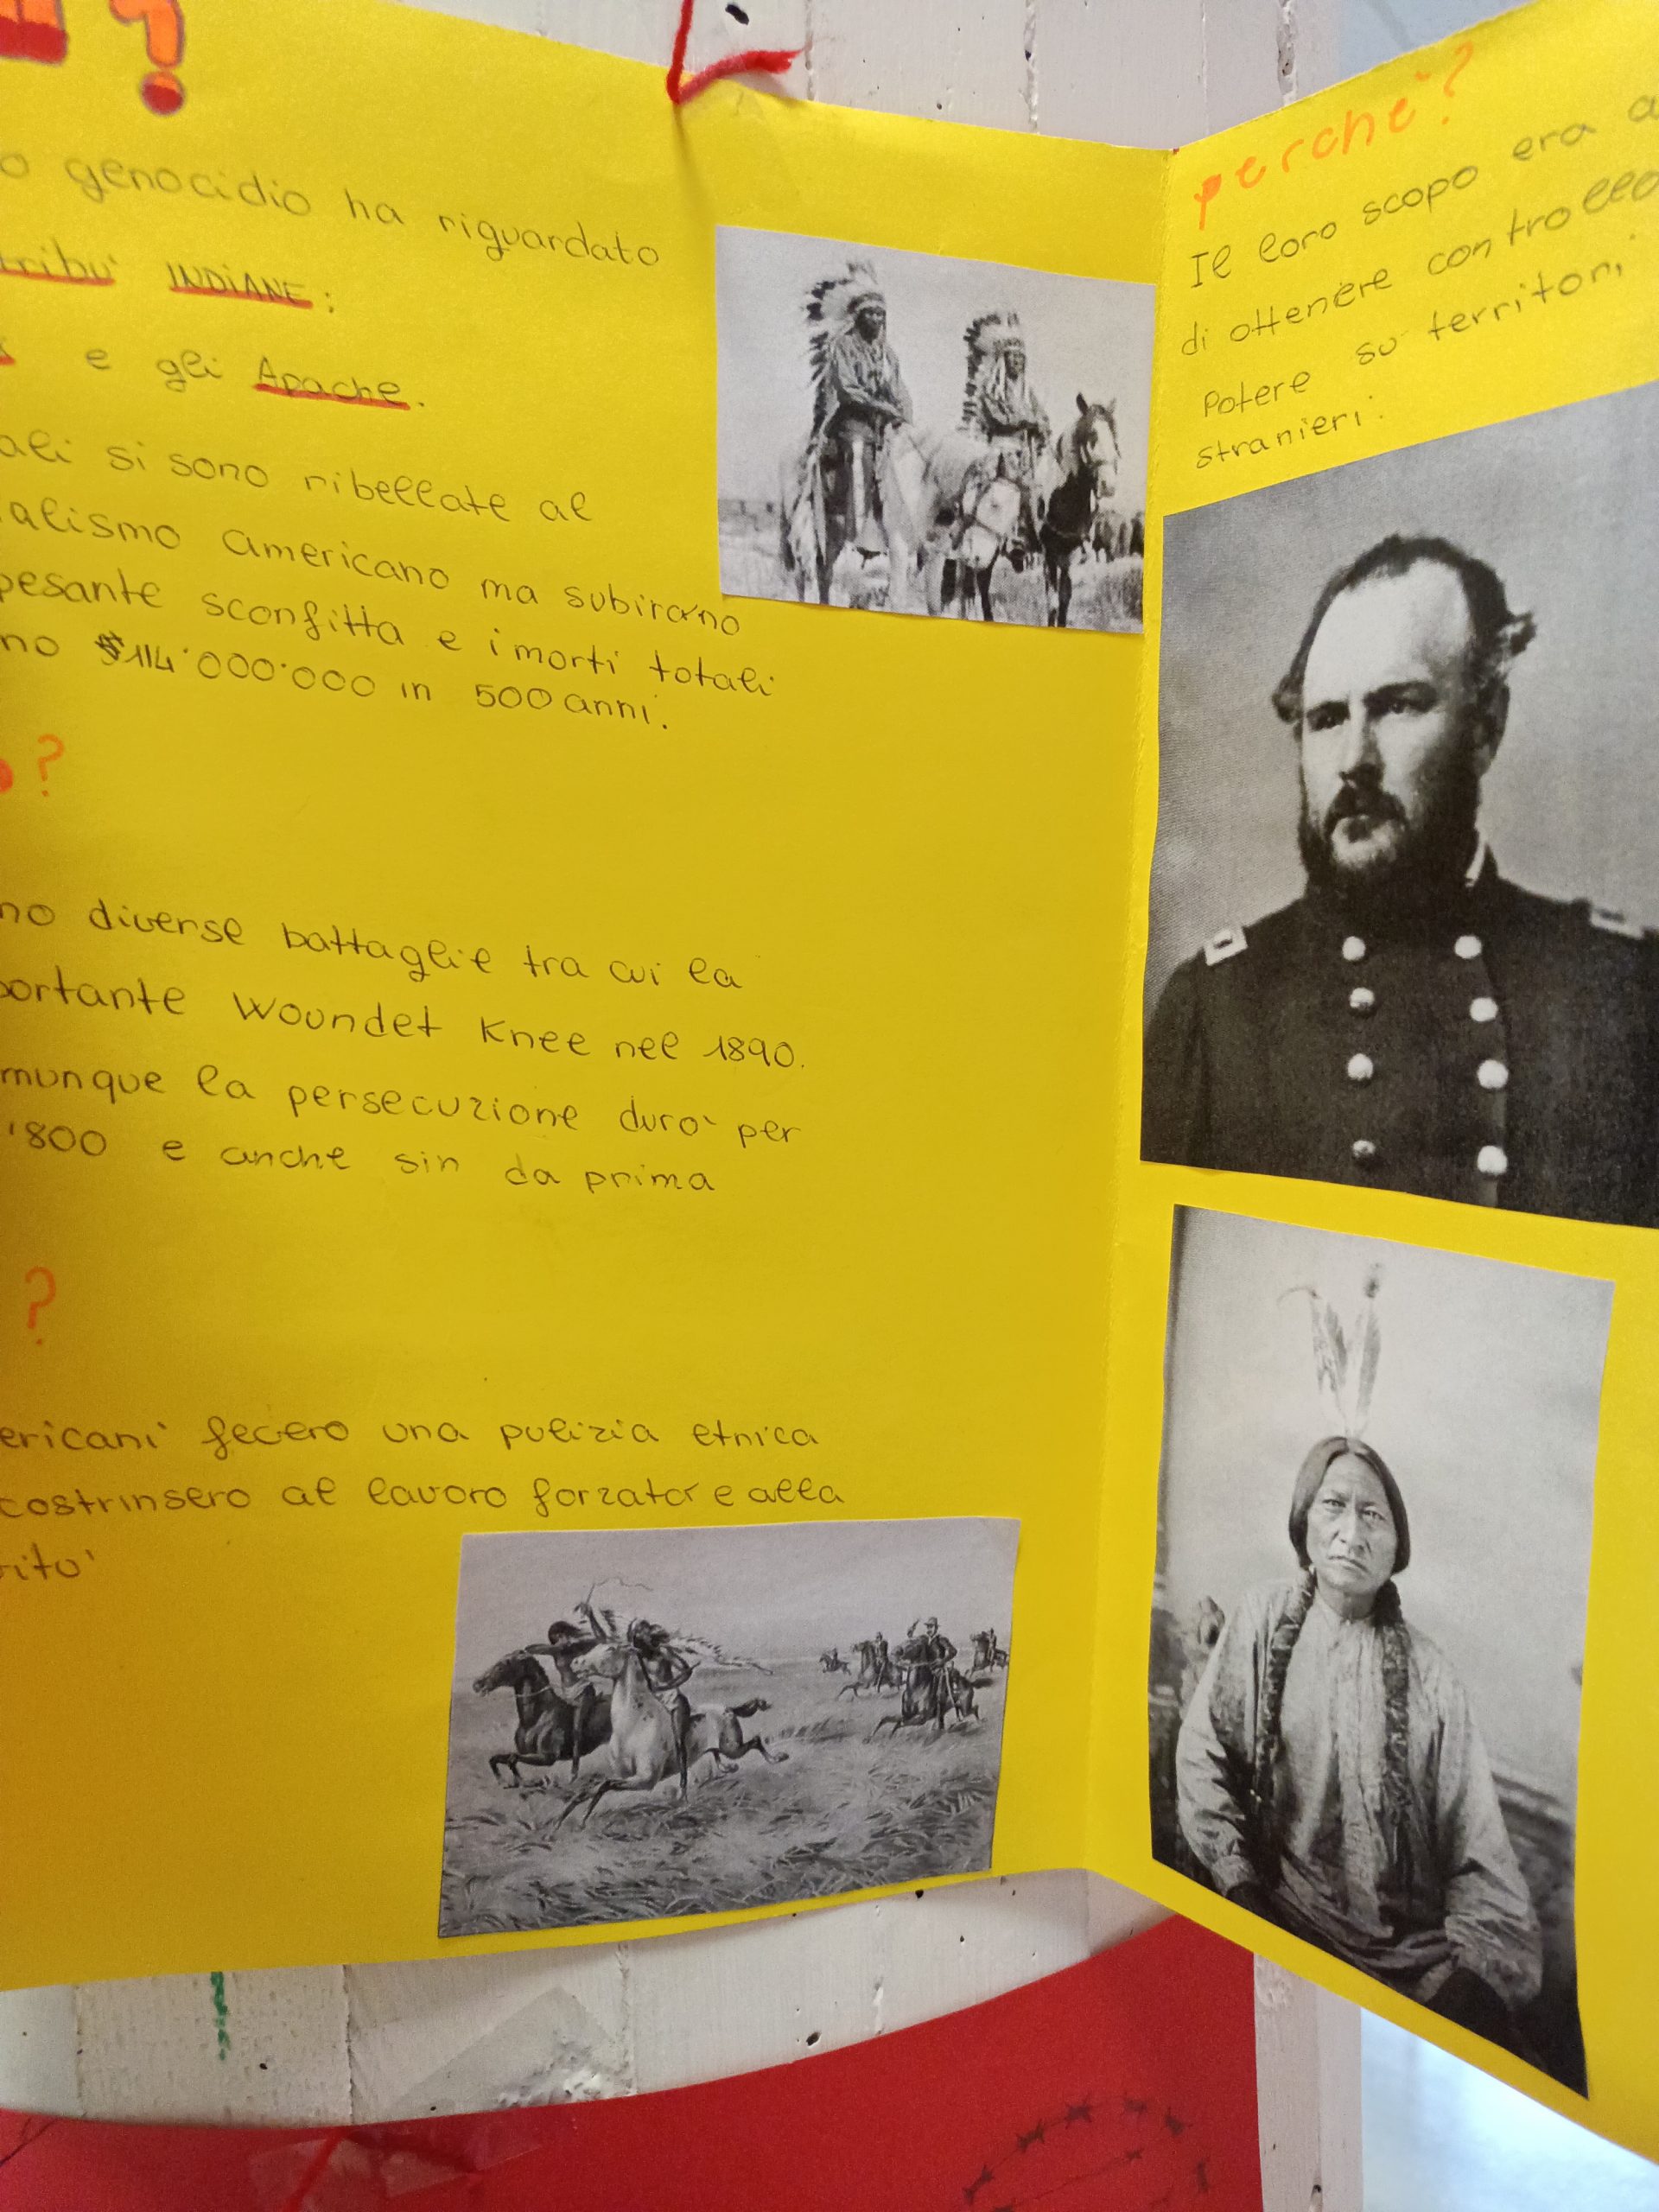 ?
genocidio ha riguardato
tribu' INDIANE:
e gli Apache.
si sono ribellate al
americano ma subirano
pesante sconfitta e i morti totali
114'000'000 in 500 anni.
?
diverse battaglie tra cui la
Woundet Knee nel 1890.
la persecuzione duro' per
'800 e anche sin da prima
?
fecero una pulizia etnica
costrinsero al lavoro forzato e alla
perche'?
Il loro scopo era
di ottenere controllo
Potere su territori
stranieri.